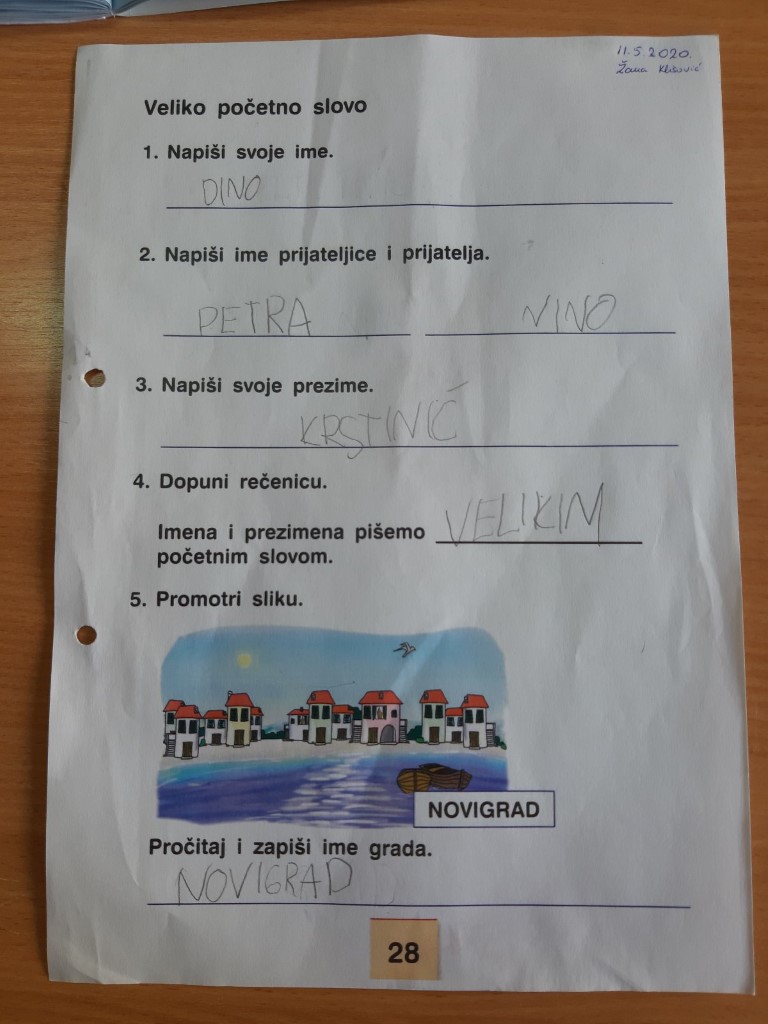 11.5.2020.
Žana
Veliko početno slovo
1. Napiši svoje ime.
DINO
2. Napiši ime prijateljice i prijatelja.
PETRA NINO
3. Napiši svoje prezime.
KRSTINIĆ
4. Dopuni rečenicu.
Imena i prezimena pišemo VELIKIM
početnim slovom.
5. Promotri sliku.
NOVIGRAD
Pročitaj i zapiši ime grada.
NOVIGRAD
28